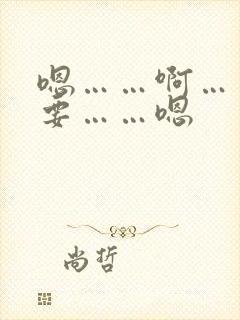 嗯……啊…
要……嗯
尚哲